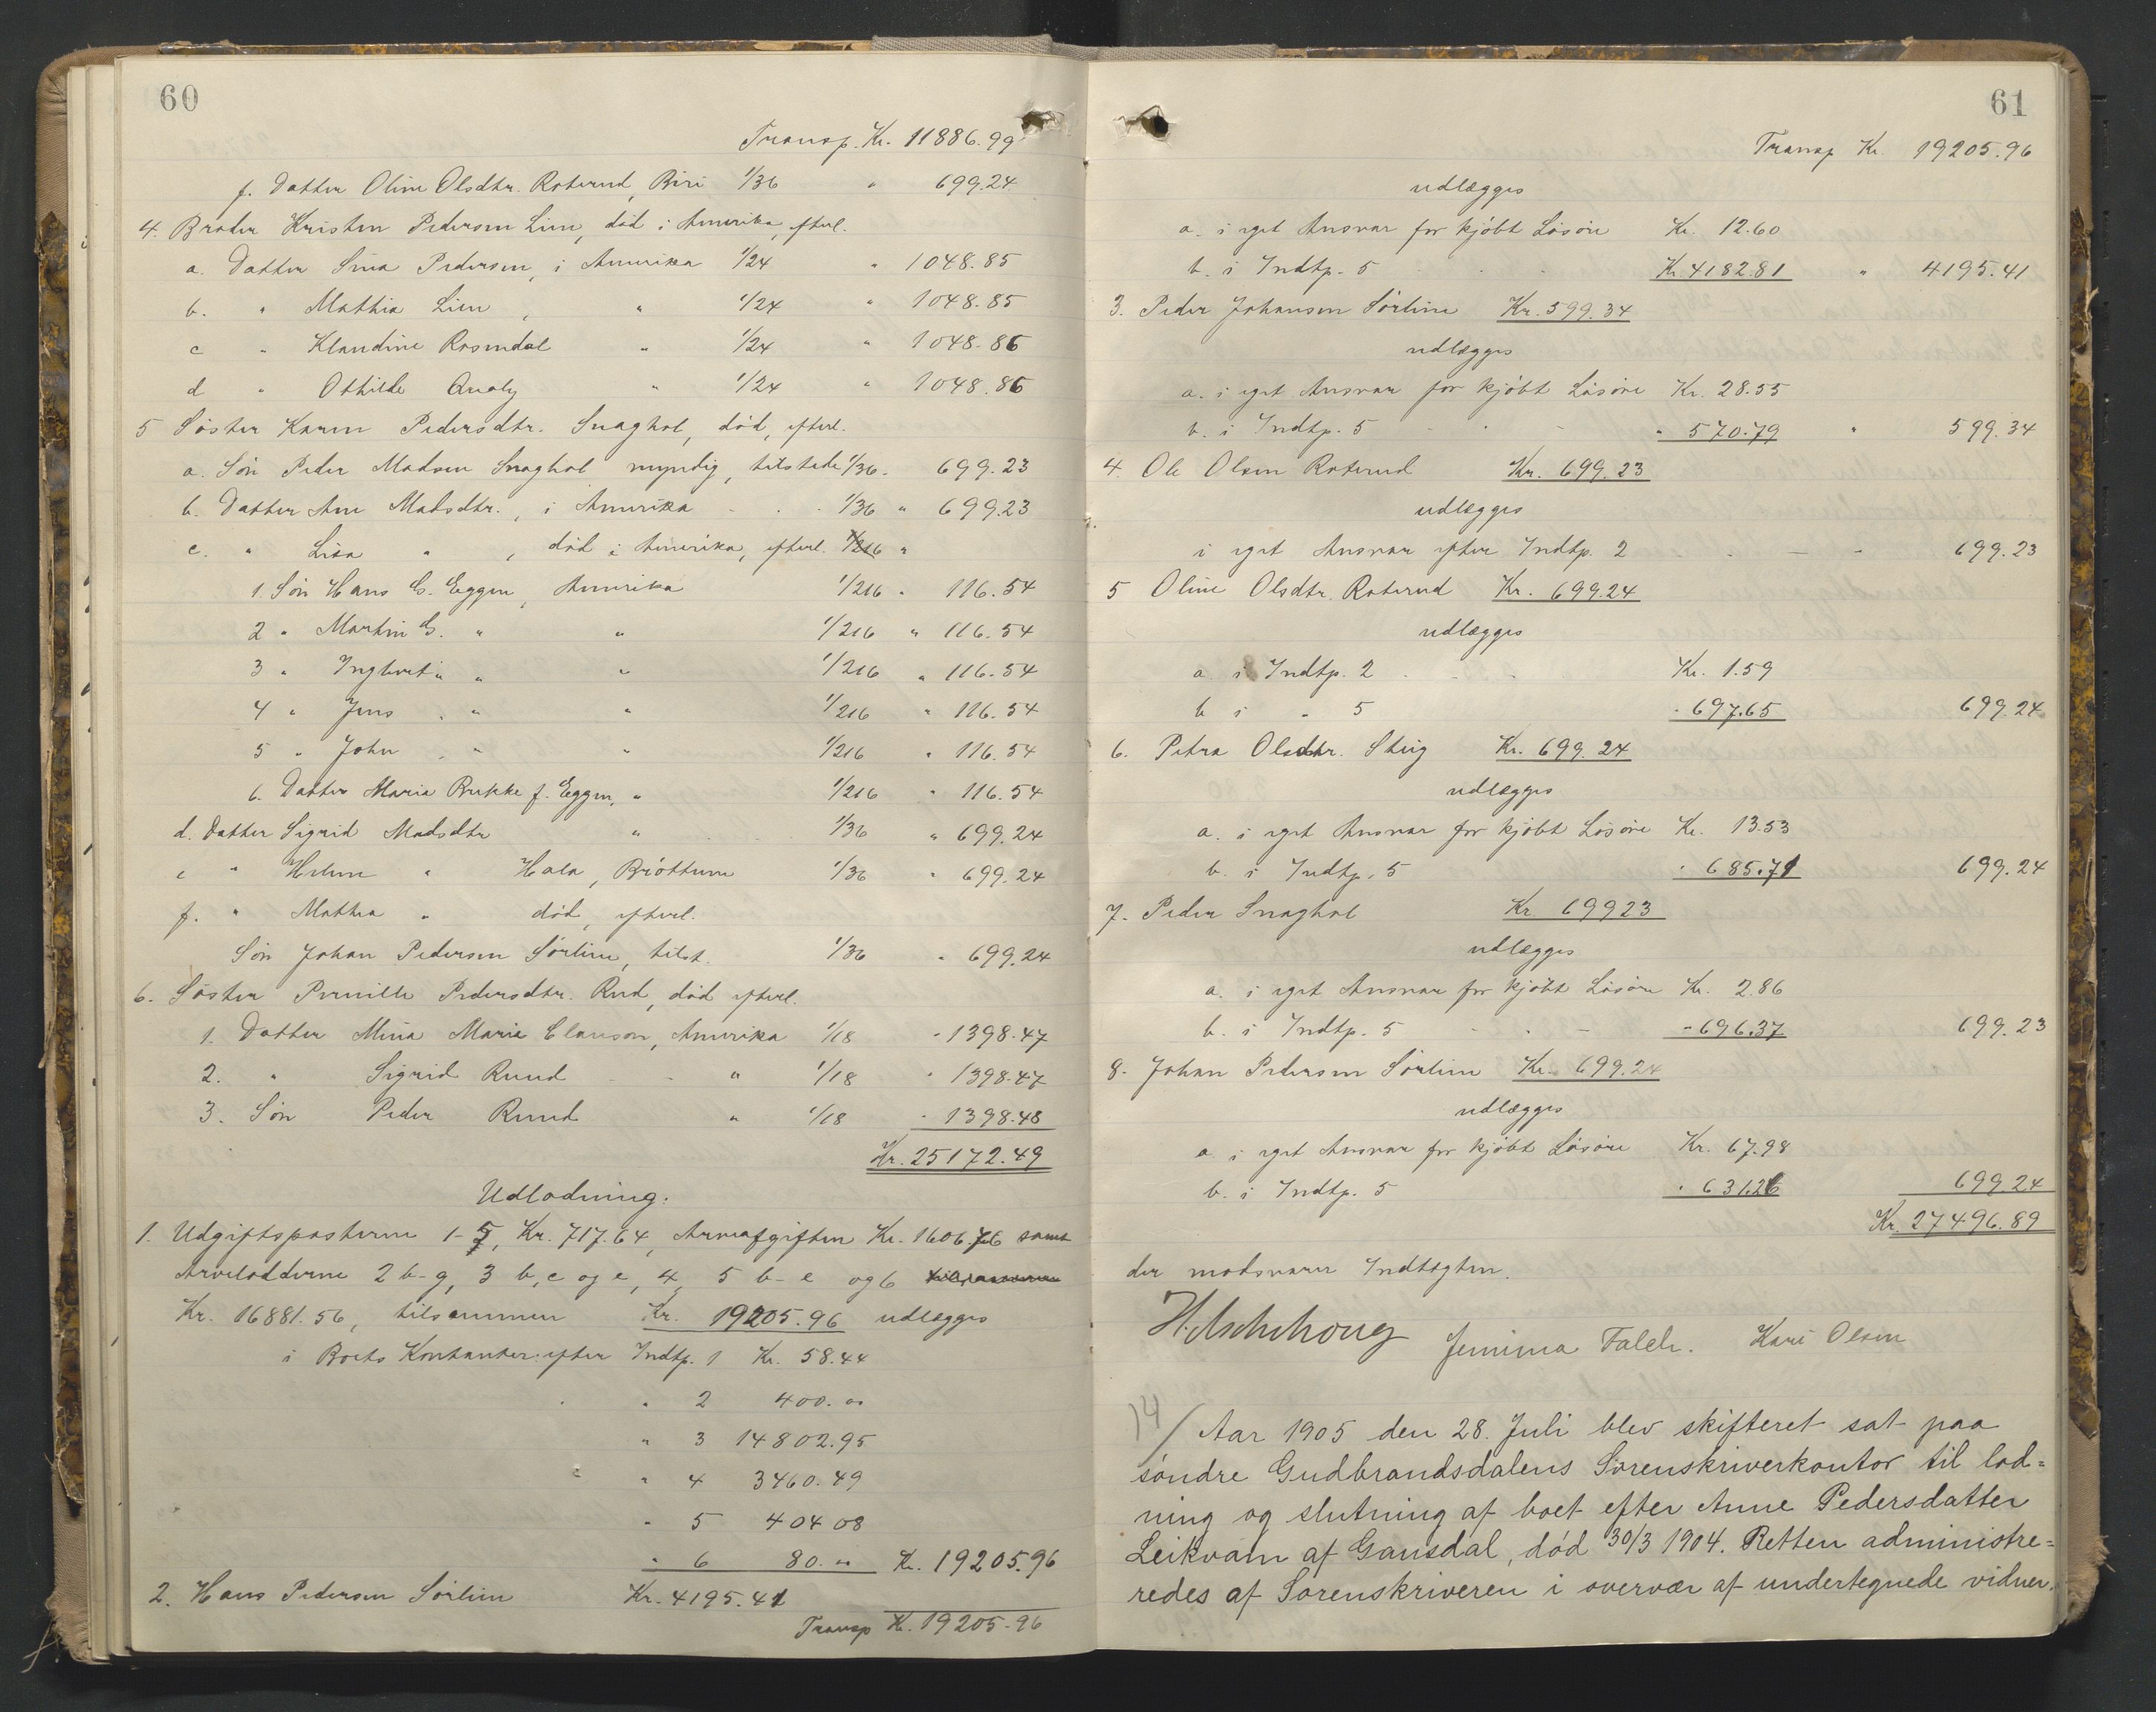 60
Transp. Kr. 11886.99
f. Datter Oline Olsdtr. Roterud, Biri 1/36 " 699.24
4. Broder Kristen Pedersen Lien, død i Amerika, efterl.
a. Datter Sina Pedersen, i Amerika 1/24 " 1048.85
b. " Mathia Lien, " 1/24 " 1048.85
c " Klaudine Rosendal " 1/24 " 1048.86
d " Othilde Qualy " 1/24 " 1048.86
5 Søster Karen Pedersdtr. Snaghol, død, efterl.
a. Søn Peder Madsen Snaghol myndig, tilstede 1/36 - 699.23
b. Datter Ane Madsdtr., i Amerika 1/36 " 699.23
c. " Lisa " , død i Amerika, efterl. 1/216 "
1. Søn Hans G. Eggen, Amerika 1/216 " 116.54
2 " Martin G. " " 1/216 " 116.54
3 " Ingbert " " " 1/216 " 116.54
4 " Jens " " " 1/216 " 116.54
5 " John " " " 1/216 " 116.54
6. Datter Maria Brekke f. Eggen, " 1/216 " 116.54
d. Datter Sigrid Madsdtr " 1/36 " 699.24
e " Helene " Hala, Brøttum 1/36 " 699.24
f. " Mathea " død, efterl.
Søn Johan Pedersen Sørlien, tilst. 1/36 " 699.24
6. Søster Pernille Pedersdtr. Rud, død efterl.
1. Datter Mina Marie Clauson, Amerika 1/18 " 1398.47
2. " Sigrid Ruud " 1/18 " 1398.47
3. Søn Peder Ruud " 1/18 " 1398.48
Kr. 25172.49
Udlodning.
1. Udgiftsposterne 1-5, Kr. 717.64, Arveafgiften Kr. 1606.76 samt
Arvelodderne 2 b-g, 3 b, c og e, 4, 5 b-e og 6 tilsammen
Kr. 16881.56, tilsammen Kr. 19205.96 udlægges
i Boets Kontanter efter Indtp. 1 Kr. 58.44
" " 2 400.00
" 3 14802.95
" " 4 3460.49
" 5 404 08
" 6 80. 00 Kr. 19205.96
2. Hans Pedersen Sørlien Kr. 4195.41
Transp Kr. 19205.96
61
Transp Kr. 19205.96
udlægges
a. i eget Ansvar for kjøbt Løsøre Kr. 12.60
b. i Indtp. 5 Kr. 4182.81 " 4195.41
3. Peder Johansen Sørlien Kr. 599.34
udlægges
a. i eget Ansvar for kjøbt Løsøre Kr. 28.55
b. i Indtp. 5 " 570.79 " 599.34
4. Ole Olsen Roterud Kr. 699.23
udlægges
i eget Ansvar efter Indtp. 2 699.23
5 Oline Olsdtr. Roterud Kr. 699.24
udlægges
a. i Indtp. 2 Kr. 1.59
b i " 5 " 697.65 699.24
6. Petra Olsdtr. Stig Kr. 699.24
udlægges
a. i eget Ansvar for kjøbt Løsøre Kr. 13.53
b. i Indtp. 5 " 685.71 699.24
7. Peder Snaghol Kr 699 23
udlægges
a. i eget Ansvar for kjøbt Løsøre Kr. 2.86
b. i Indtp. 5 - 696.37 699.23
8. Johan Pedersen Sørlien Kr. 699.24
udlægges
a. i eget Ansvar for kjøbt Løsøre Kr. 67.98
b. i Indtp. 5 " 631.26 699.24
Kr. 27496.89
der modsvarer Indtægten.
Jemima Falch. Kari Olsen
14/ Aar 1905 den 28. Juli blev skifteret sat paa
søndre Gudbrandsdalens Sorenskriverkontor til lod=
ning og slutning af boet efter Anne Pedersdatter
Leikvam af Gausdal, død 30/3 1904. Retten administre=
redes af Sorenskriveren i overvær af undertegnede vidner.